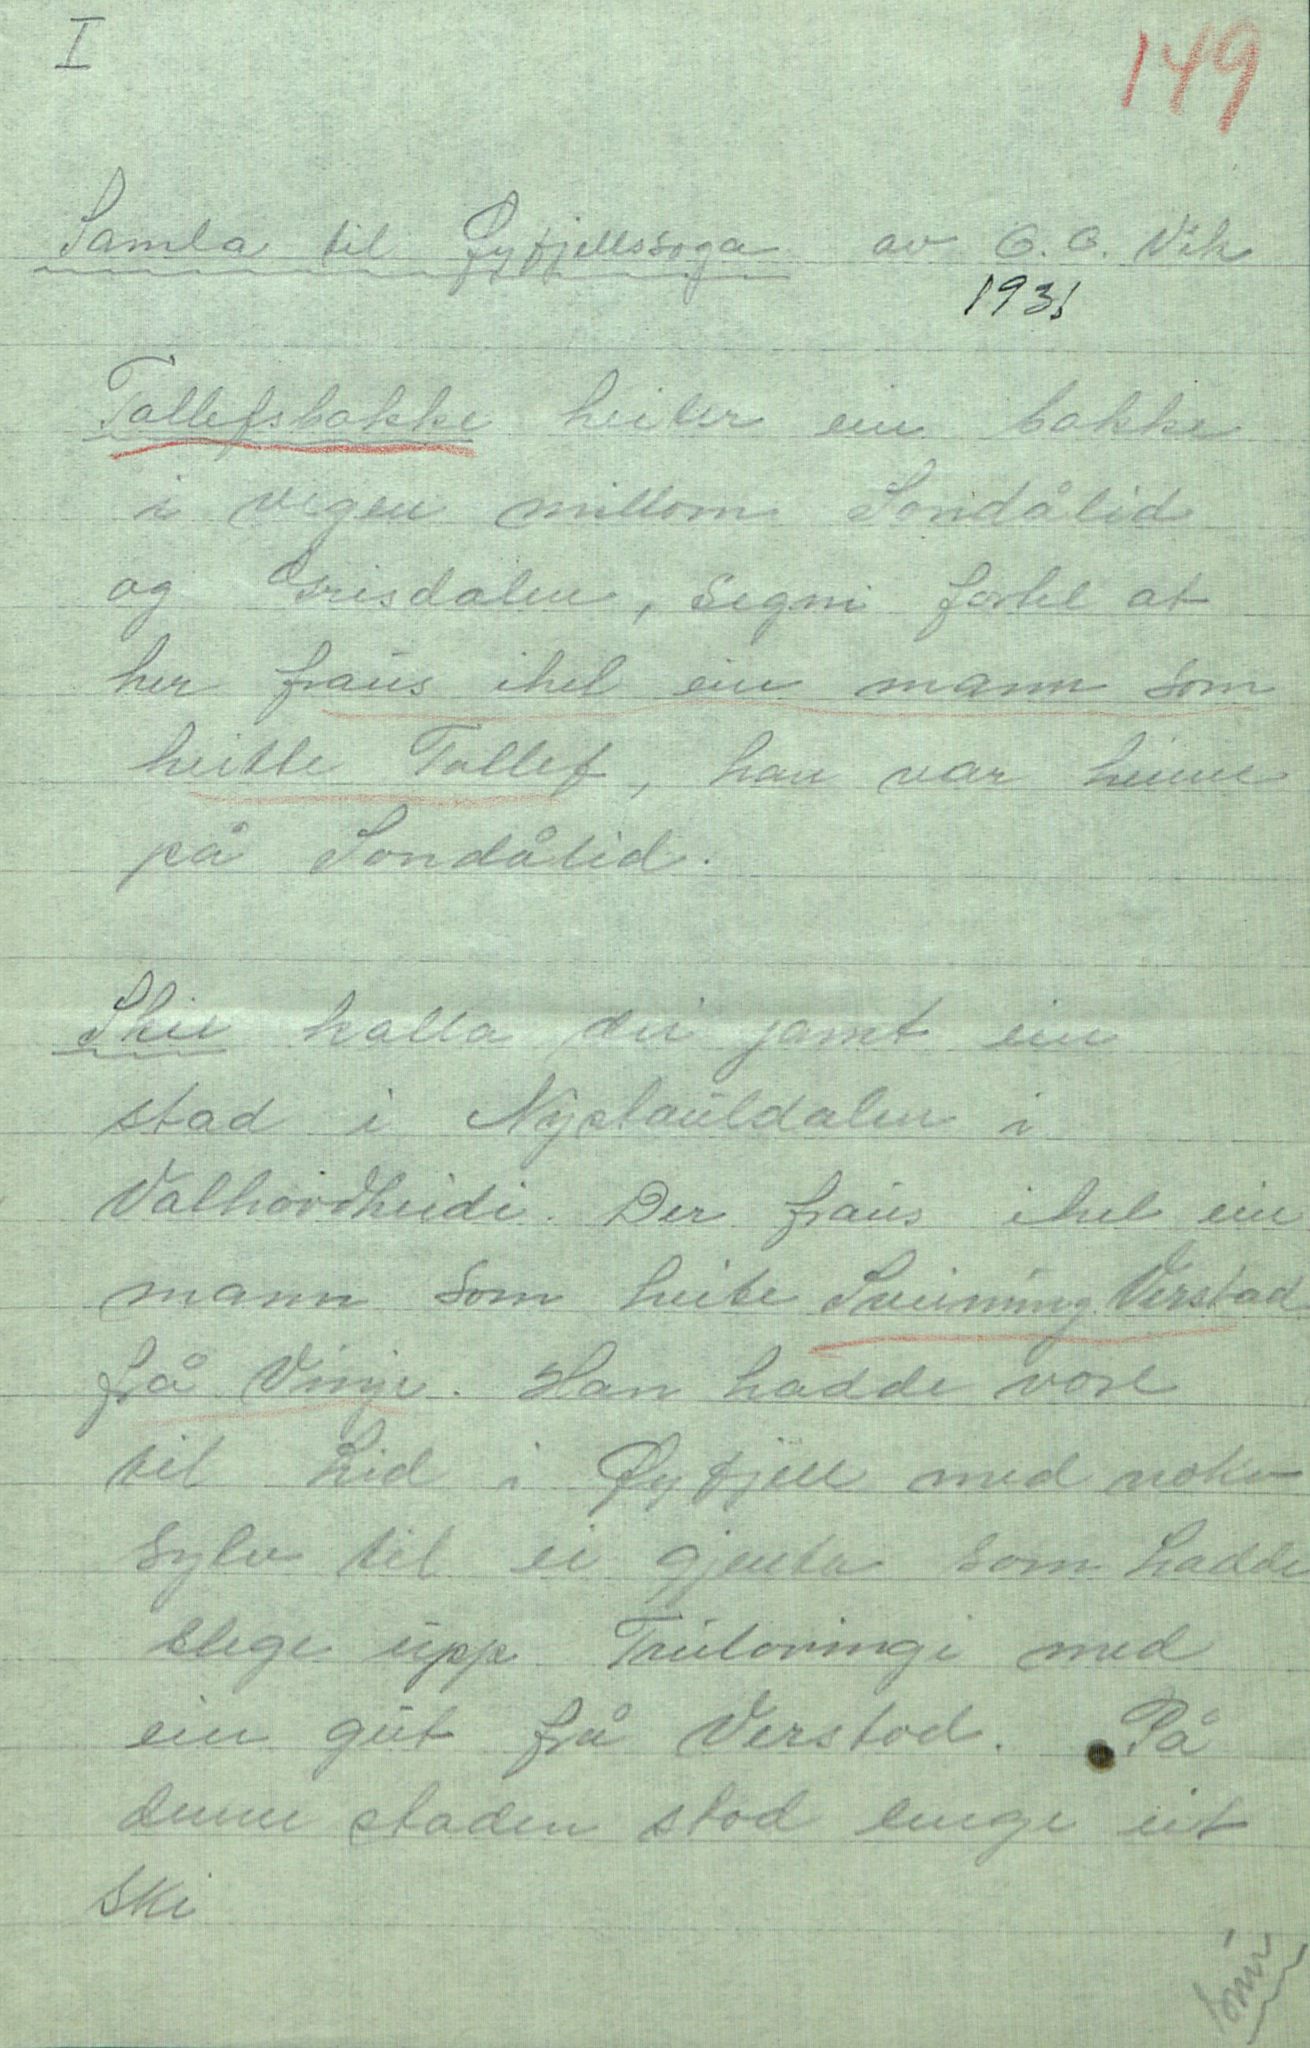 I
149
Samla til Øyfjellssoga av O. O. Vik
1931
Tallefsbakke heiter ein bakke
i vegen millom Sondålid
og Grisdalen, segni fortel at
her fraus ihel ein mann som
heitte Tallef, han var heime
på Sondålid.
Skii kalla dei jamt ein
stad i Nystauldalen i
Valhovdheidi. Der fraus ihel ein
mann som heite Sveinung Verstad
frå Vinje. Han hadde vore
til Lid i Øyfjell med noko
sylv til ei gjenta som hadde
slege upp Trulovingi med
ein gut frå Verstod. På
denne staden stod lenge eit
ski